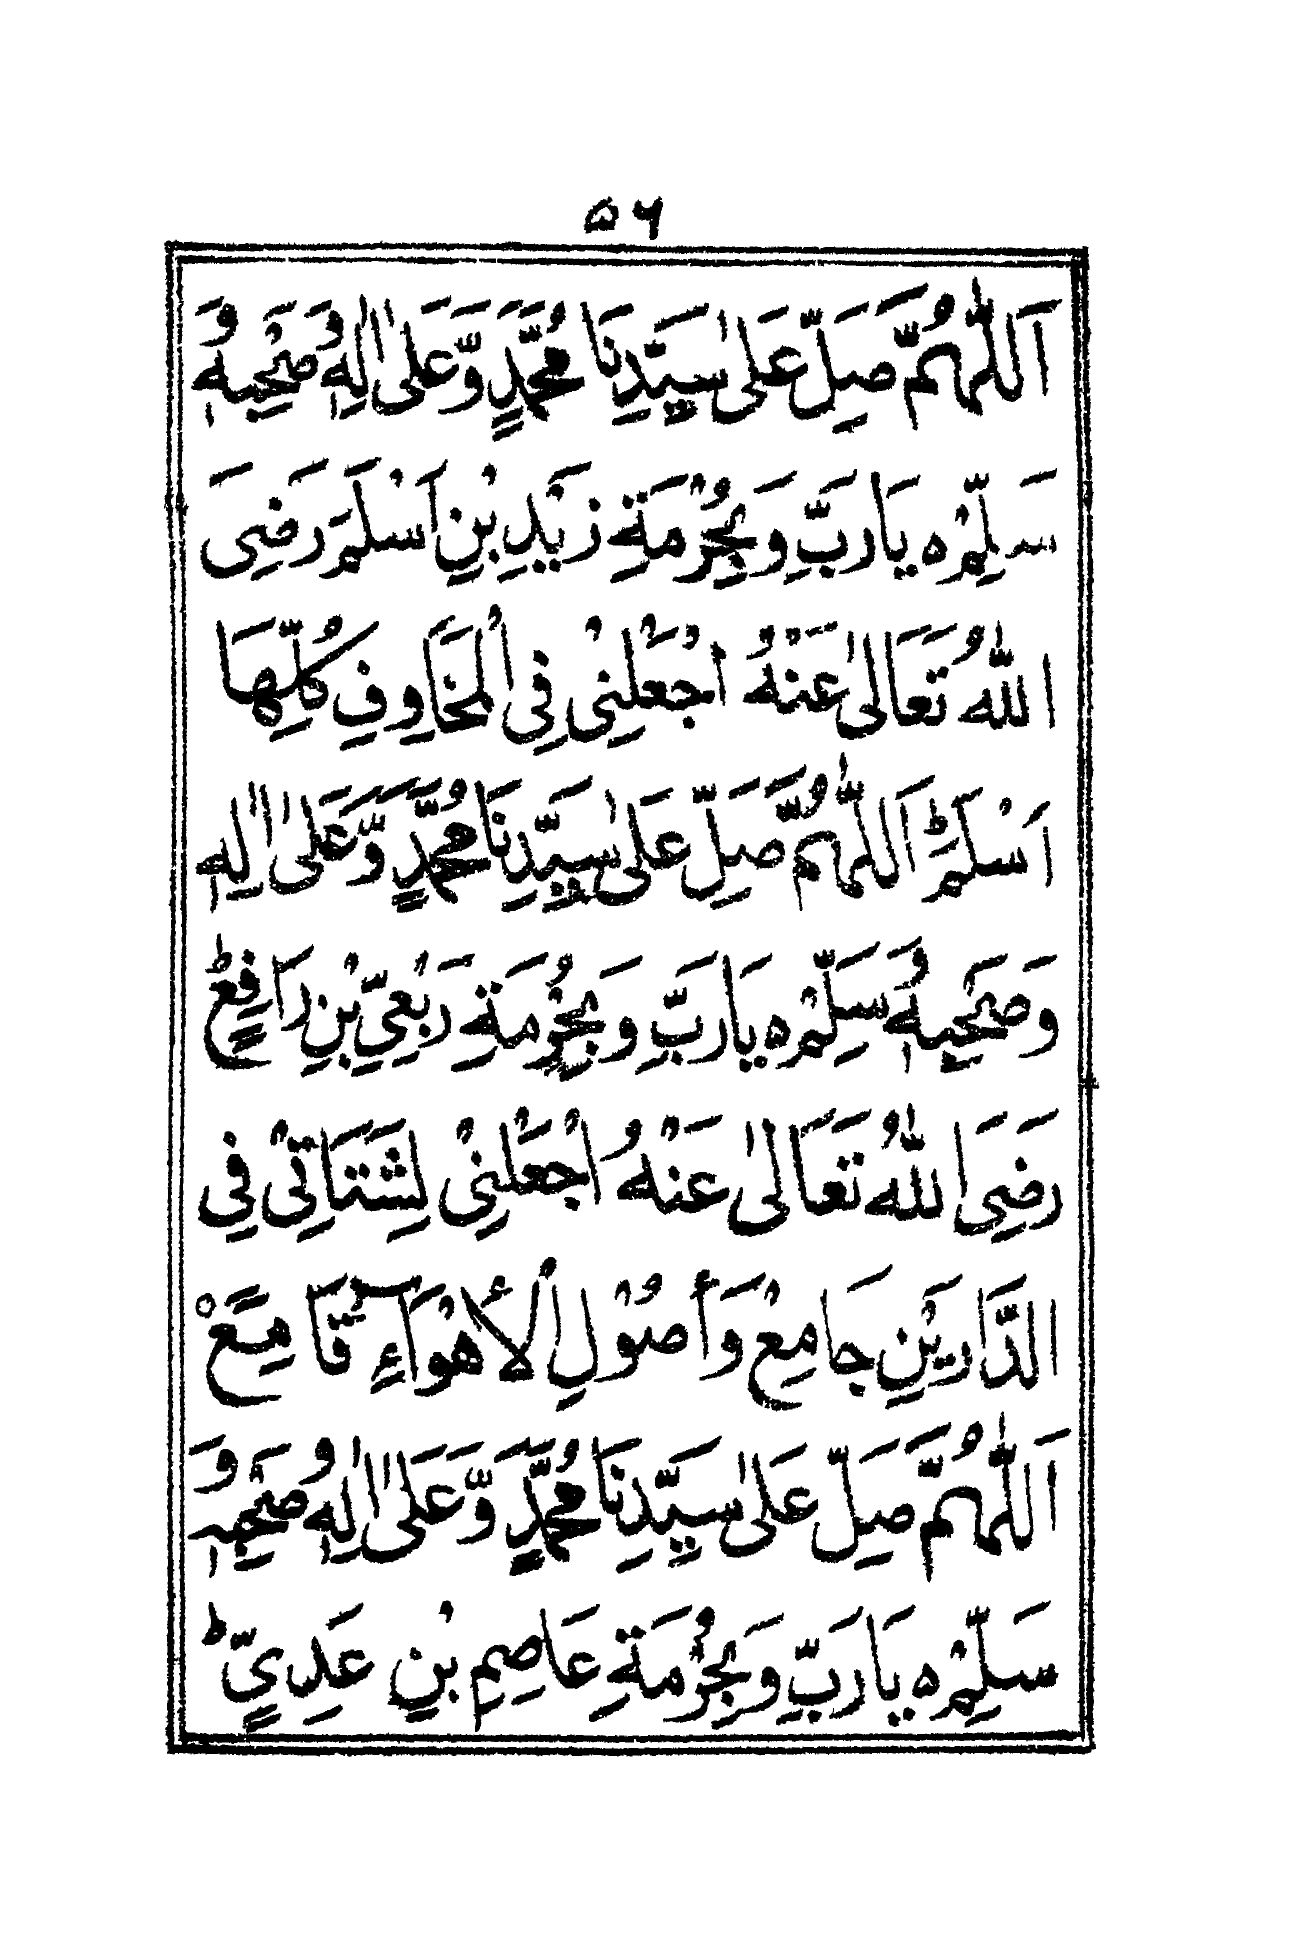 ۵۶
اَللّٰهُمَّ صَلِّ عَلٰى سَيِّدِنَا مُحَمَّدٍ وَّعَلٰى اٰلِهٖ وَصَحْبِهٖ وَ
سَلِّمْ ه يَا رَبِّ وَبِحُرْمَةِ زَيْدِ بْنِ اَسْلَمَ رَضِىَ
اللّٰهُ تَعَالٰى عَنْهُ اجْعَلْنِىْ فِى الْمَخَاوِفِ كُلِّهَا
اَسْلَمَ ؕ اَللّٰهُمَّ صَلِّ عَلٰى سَيِّدِنَا مُحَمَّدٍ وَّعَلٰى اٰلِهٖ
وَصَحْبِهٖ وَسَلِّمْ ه يَا رَبِّ وَبِحُرْمَةِ رَبْعِيِّ بْنِ رَافِعٍ ؕ
رَضِىَ اللّٰهُ تَعَالٰى عَنْهُ اجْعَلْنِىْ لِشَتَاتِىْ فِى
الدَّارَيْنِ جَامِعْ وَأُصُوْلِ لْأَهْوَآءِ قَامِعْ ه
اَللّٰهُمَّ صَلِّ عَلٰى سَيِّدِنَا مُحَمَّدٍ وَّعَلٰى اٰلِهٖ وَصَحْبِهٖ وَ
سَلِّمْ ه يَا رَبِّ وَبِحُرْمَةِ عَاصِمِ بْنِ عَدِيٍّ ؕ